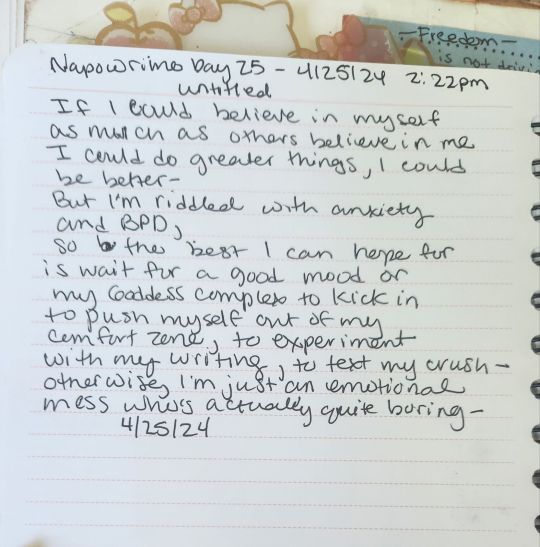 -Freedom-
is not
Napowrimo Day 25 - 4/25/24 2:22pm
untitled
If I could believe in myself
as much as others believe in me
I could do greater things, I could
be better-
But I'm riddled with anxiety
and BPD,
so the best I can hope for
is wait for a good mood or
my Goddess complex to kick in
to push myself out of my
comfort zone, to experiment
with my writing, to text my crush-
otherwise, I'm just an emotional
mess who's actually quite boring-
4/25/24